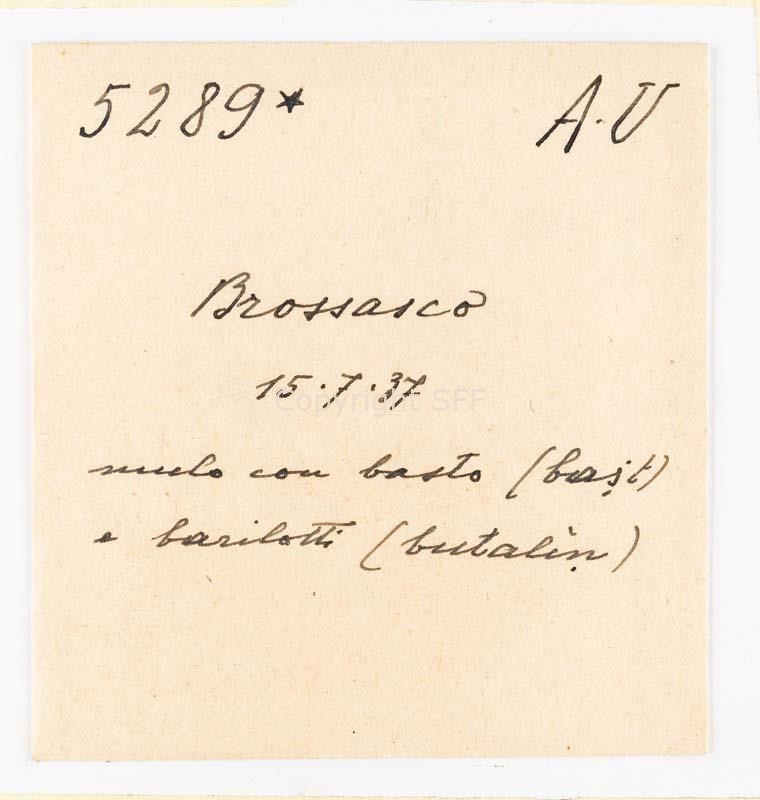 5289* A.U
Brossasco
15.7.37
Copyright SFF
mulo con basto (baṣt)
e barilotti (butalịṇ)